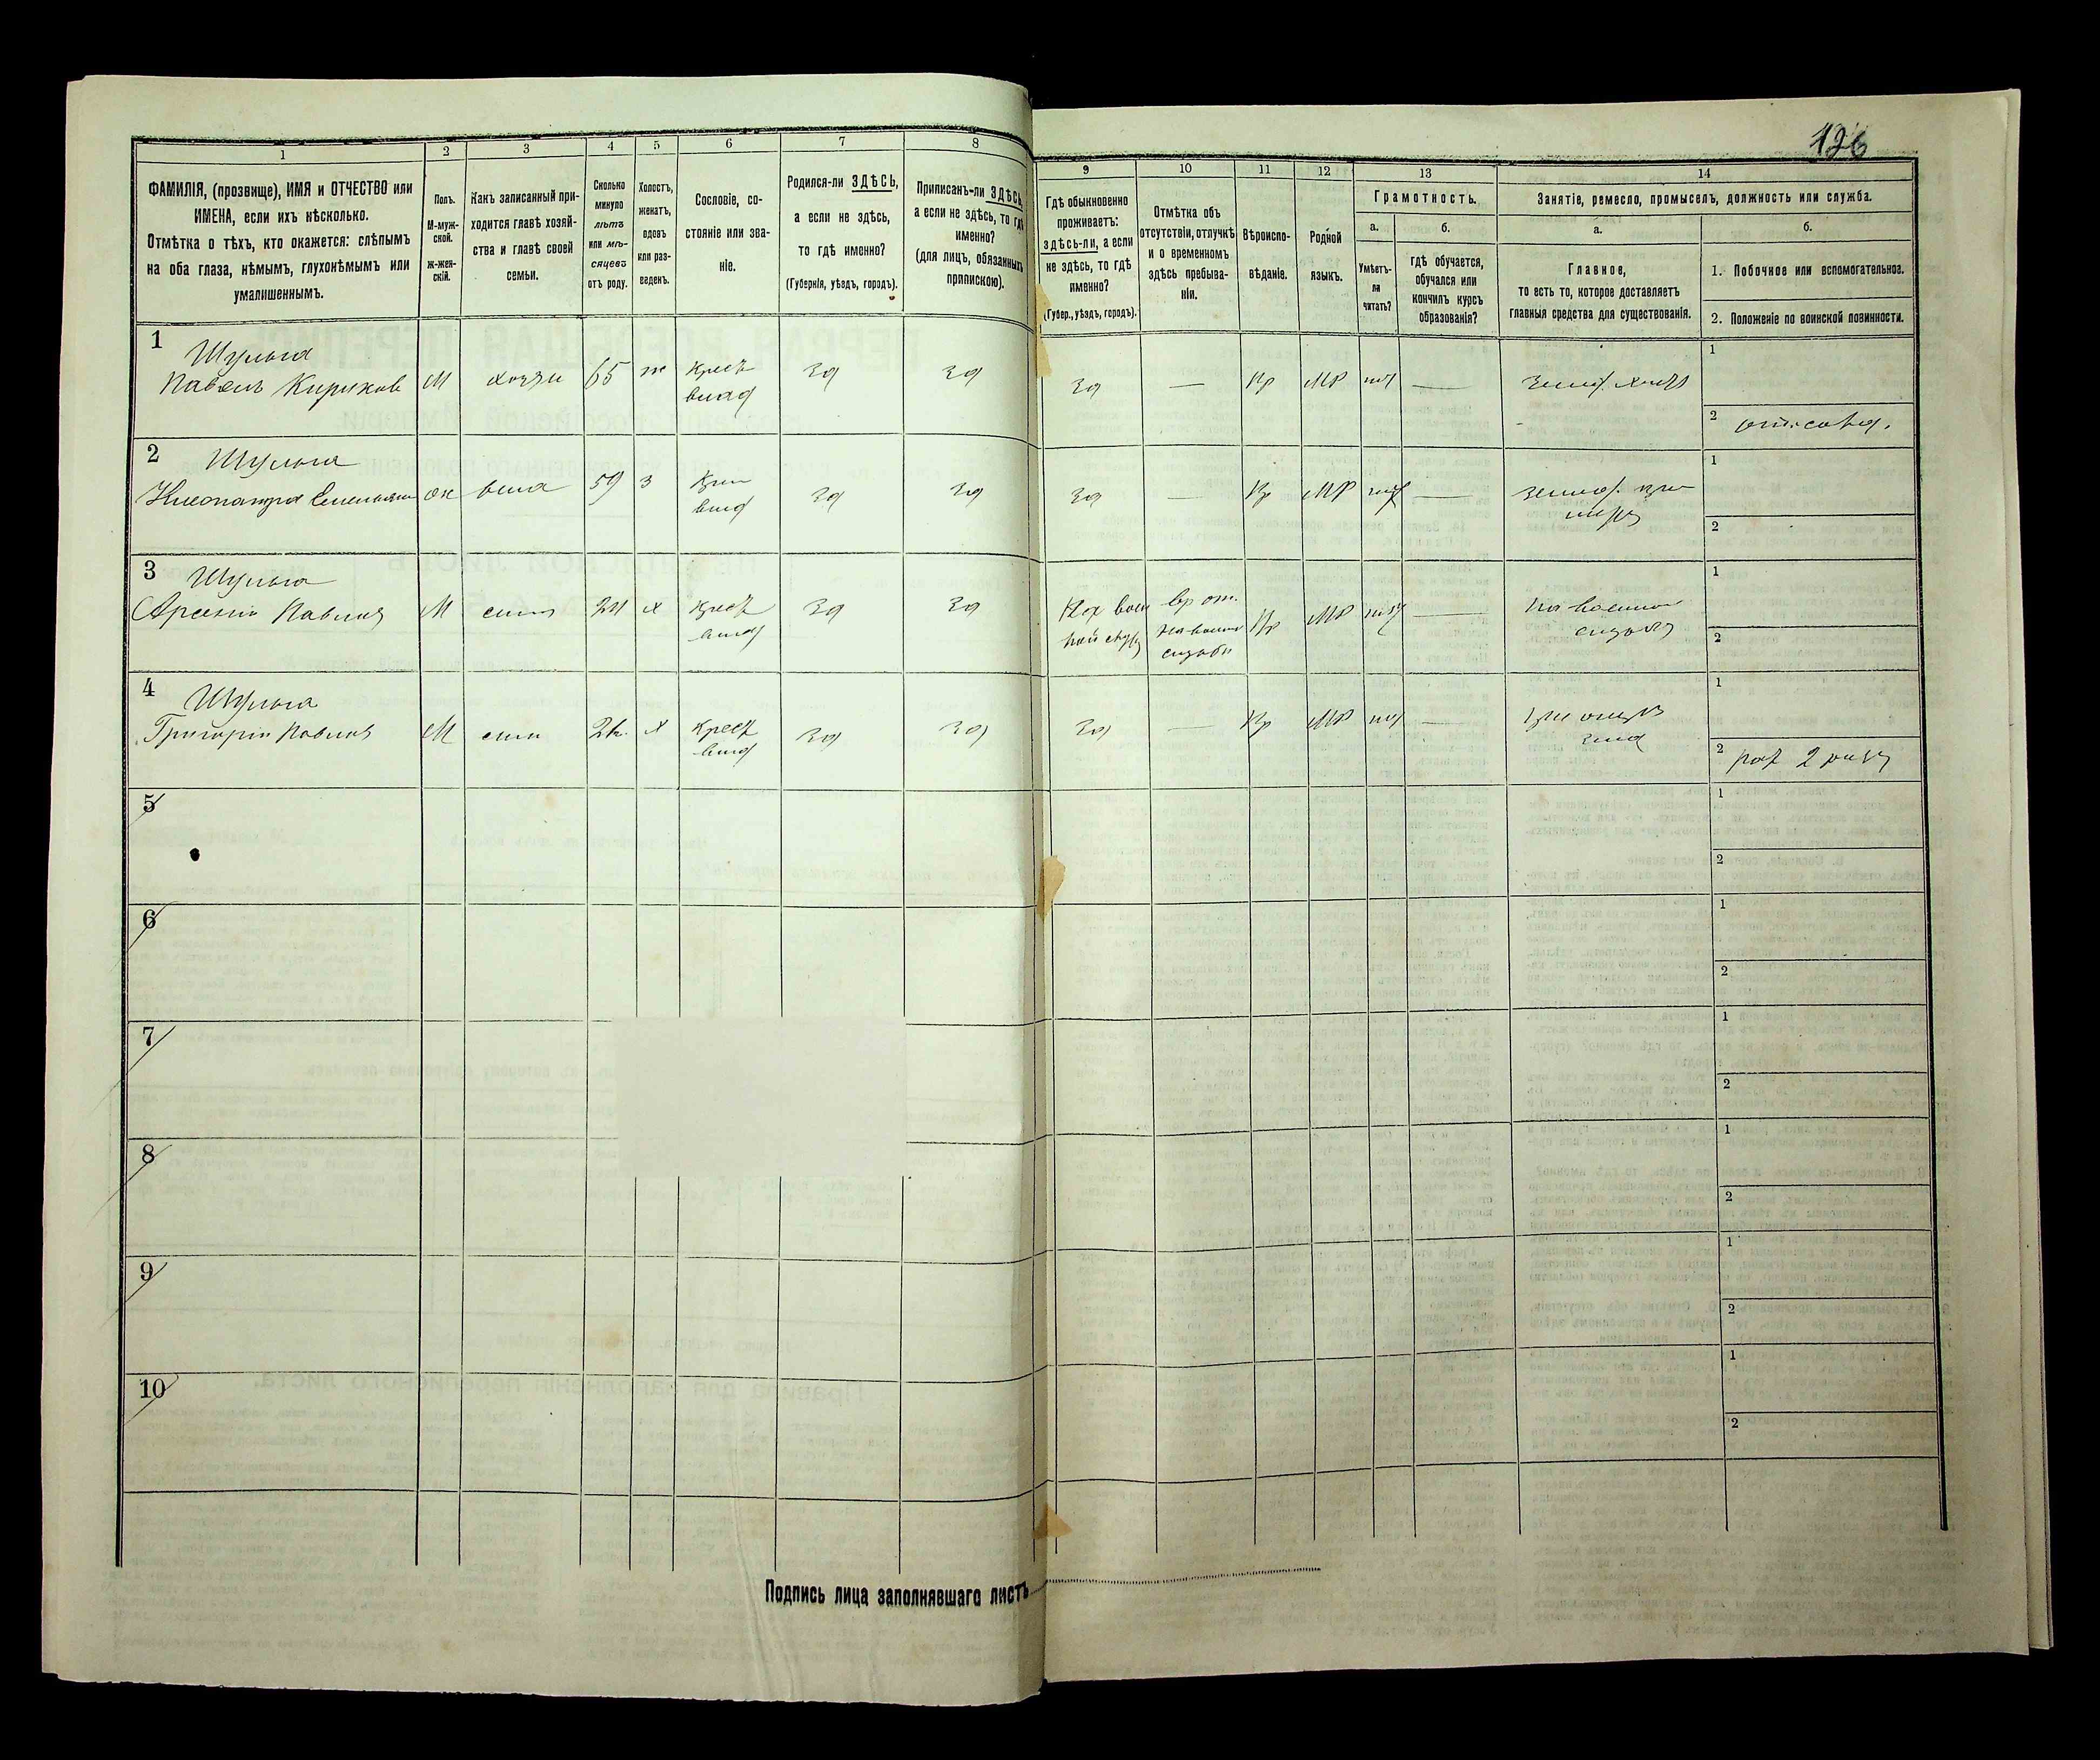 126
1
ФАМИЛІЯ, (прозвище), ИМЯ и ОТЧЕСТВО или
ИМЕНА, если ихъ нѣсколько.
Отмѣтка о тѣхъ, кто окажется: слѣпымъ
на оба глаза, нѣмымъ, глухонѣмымъ или
умалишеннымъ.
2
Полъ.
М-муж-
ской.
ж-жен-
скій.
3
Какъ записанный при-
ходится главѣ хозяй-
ства и главѣ своей
семьи.
4
Сколько
минуло
лѣтъ
или мѣ-
сяцевъ
отъ роду.
5
Холостъ,
женатъ,
вдовъ
или раз-
веденъ.
6
Сословіе, со-
стояніе или зва-
ніе.
7
Родился-ли ЗДѢСЬ,
а если не здѣсь,
то гдѣ именно?
(Губернія, уѣздъ, городъ).
8
Приписанъ-ли ЗДѢСЬ,
а если не здѣсь, то гдѣ
именно?
(для лицъ, обязанныхъ
припискою).
9
Гдѣ обыкновенно
проживаетъ:
здѣсь-ли, а если
не здѣсь, то гдѣ
именно?
(Губер., уѣздъ, городъ).
10
Отмѣтка объ
отсутствіи, отлучкѣ
и о временномъ
здѣсь пребыва-
ніи.
11
Вѣроиспо-
вѣданіе.
12
Родной
языкъ.
13
Грамотность.
а.
Умѣетъ-
ли
читать?
б.
гдѣ обучается,
обучался или
кончилъ курсъ
образованія?
14
Занятіе, ремесло, промыселъ, должность или служба.
а.
Главное,
то есть то, которое доставляетъ
главныя средства для существованія.
б.
1. Побочное или вспомогательное.
2. Положеніе по воинской повинности.
1
Шульга
Павелъ Кириков
М
хозяи
65
ж
Крест
влад
Зд
Зд
Зд
—
Пр
МР
—
1
2
2
Шульга
Клеопатра
ж
59
з
влад
Зд
Зд
Зд
—
Пр
МР
—
1
2
3
Шульга
Арсеній Павлов
М
сын
х
Крест
влад
Зд
Зд
Пр
МР
—
На военной
службѣ
1
2
4
Шульга
Григорій Павлов
М
сын
х
Крест
влад
Зд
Зд
Зд
—
Пр
МР
—
при отцѣ
1
2
рат 2 разр
5
1
2
6
1
2
7
1
2
8
1
2
9
1
2
10
1
2
Подпись лица заполнявшаго листъ